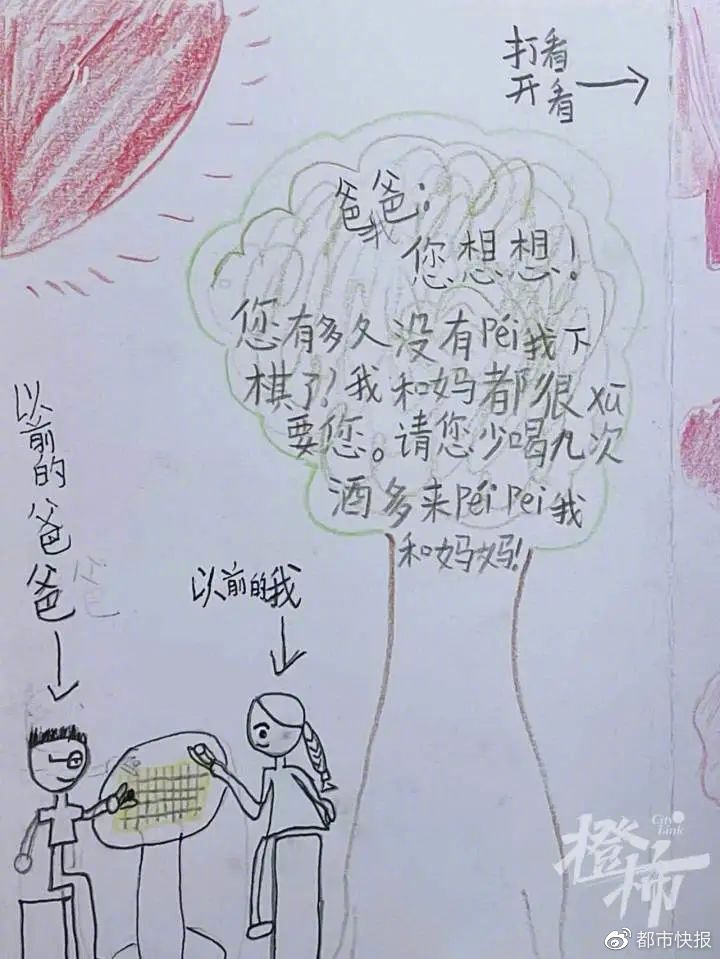 打开看看
爸爸:
我
您想想!
您有多久没有péi我下
棋了!我和妈都很xū
要您。请您少喝几次
酒多来péi pei我
和妈妈!
以前的爸爸
爸
以前的我
橙柿
City Link
都市快报